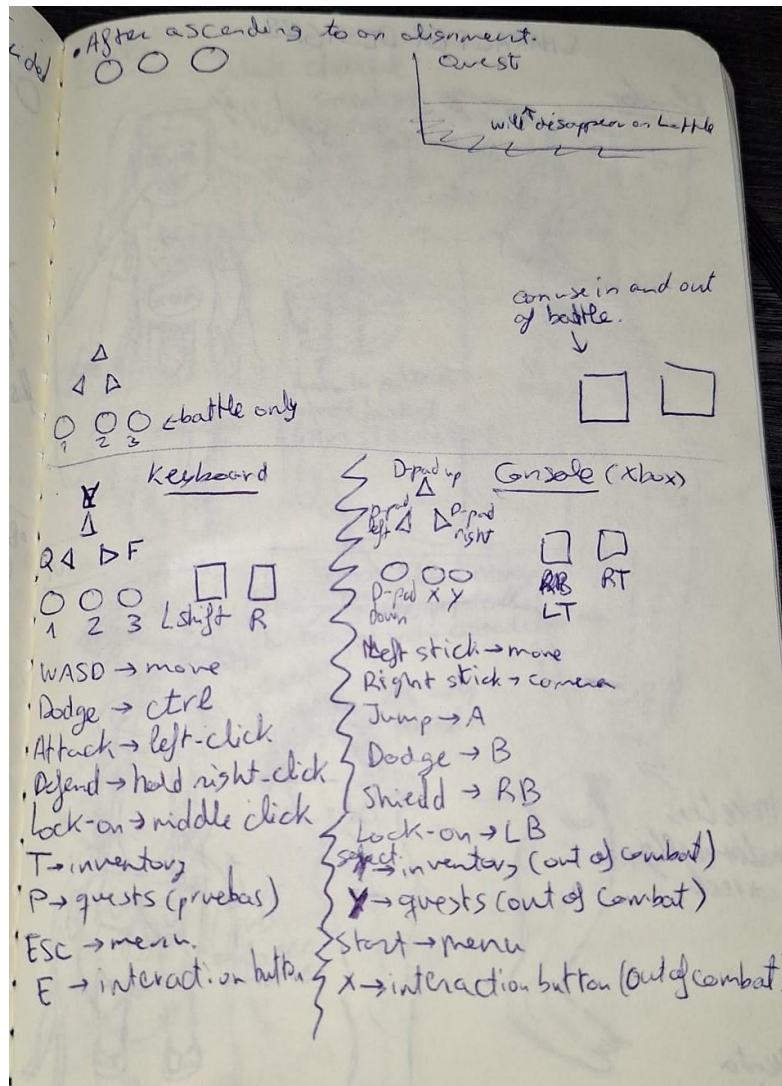 • After ascending to an alignment.
Quest
will disappear on battle
can use in and out
of battle.
1 2 3 battle only
Keyboard
Q F
1 2 3 Lshift R
WASD → move
• Dodge → ctrl
• Attack → left-click
• Defend → hold right-click
• Lock-on → middle click
T → inventory
• P → quests (pruebas)
• ESC → menu.
• E → interaction button
Console (Xbox)
D-pad up
D-pad left
D-pad right
D-pad down X Y
RB RT
LT
Left stick → move
Right stick → camera
Jump → A
Dodge → B
Shield → RB
Lock-on → LB
select → inventory (out of combat)
Y → quests (out of combat)
Start → menu
X → interaction button (out of combat